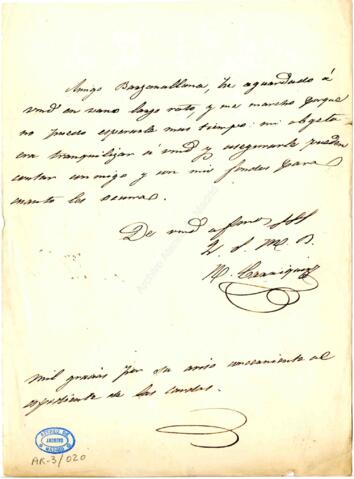 Amigo Barzanallana, he aguardado á
vmd en vano largo rato, y me marcho porque
no puedo esperarle mas tiempo: mi objeto
era tranquilizar á vmd y asegurarle pueden
contar conmigo y con mis fondos para
cuanto les ocurra.
De vmd affmo
Q. S. M. B.
M.
Mil gracias por su aviso concerniente al
expediente de las
ARCHIVO DE
AR-3/020